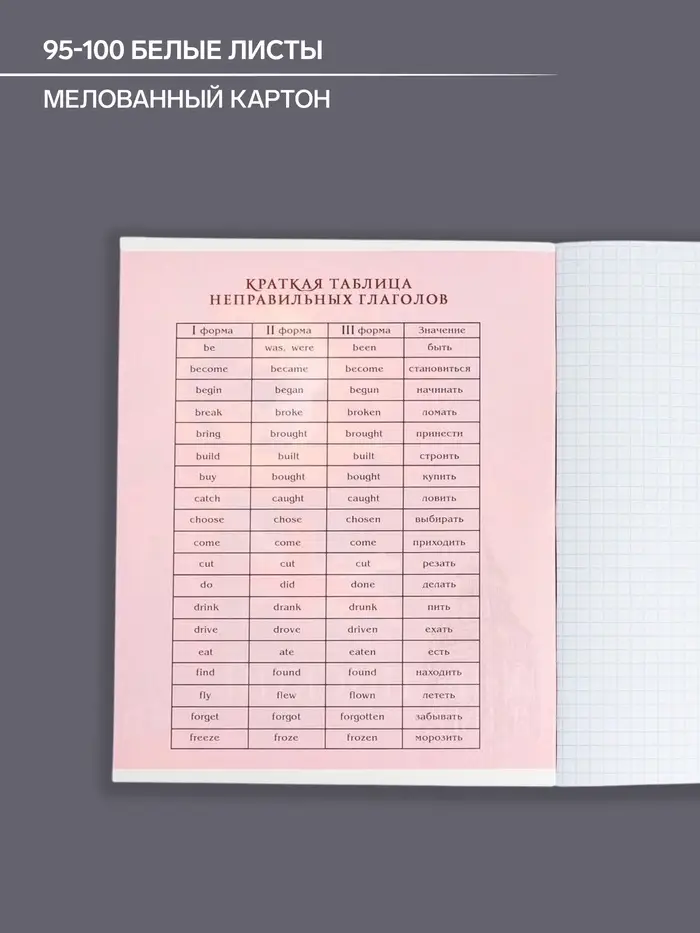 95-100 БЕЛЫЕ ЛИСТЫ
МЕЛОВАННЫЙ КАРТОН
КРАТКАЯ ТАБЛИЦА
НЕПРАВИЛЬНЫХ ГЛАГОЛОВ
I форма II форма III форма Значение
be was, were been быть
become became become становиться
begin began begun начинать
break broke broken ломать
bring brought brought принести
build built built строить
buy bought bought купить
catch caught caught ловить
choose chose chosen выбирать
come come come приходить
cut cut cut резать
do did done делать
drink drank drunk пить
drive drove driven ехать
eat ate eaten есть
find found found находить
fly flew flown лететь
forget forgot forgotten забывать
freeze froze frozen морозить